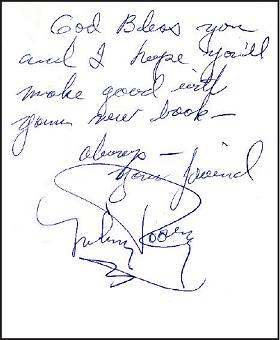 God Bless you
and I hope you'll
make good with
your new book -
always -
your friend